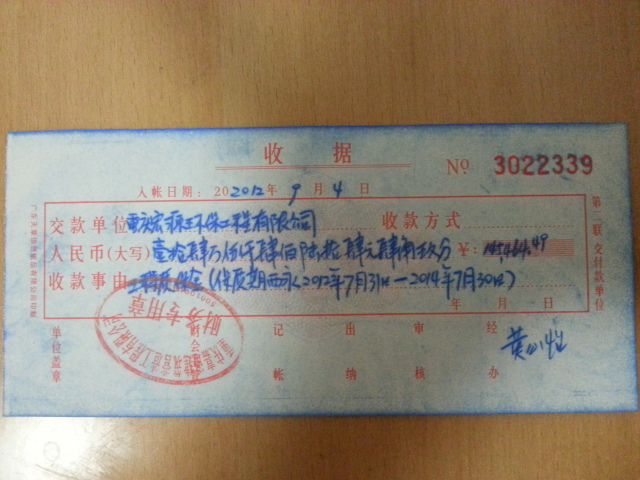 收据
No 3022339
入帐日期: 202012年9月4日
交款单位重庆宏源环保工程有限公司 收款方式
人民币(大写)壹拾肆万伍仟肆佰陆拾肆元肆角玖分 ¥: 145,464.49
收款事由工程质保金(保质期两年2012年7月31日—2014年7月30日)
年 月 日
单位盖章 财务专用章
记帐 出纳 审核 经办
第二联 交付款单位